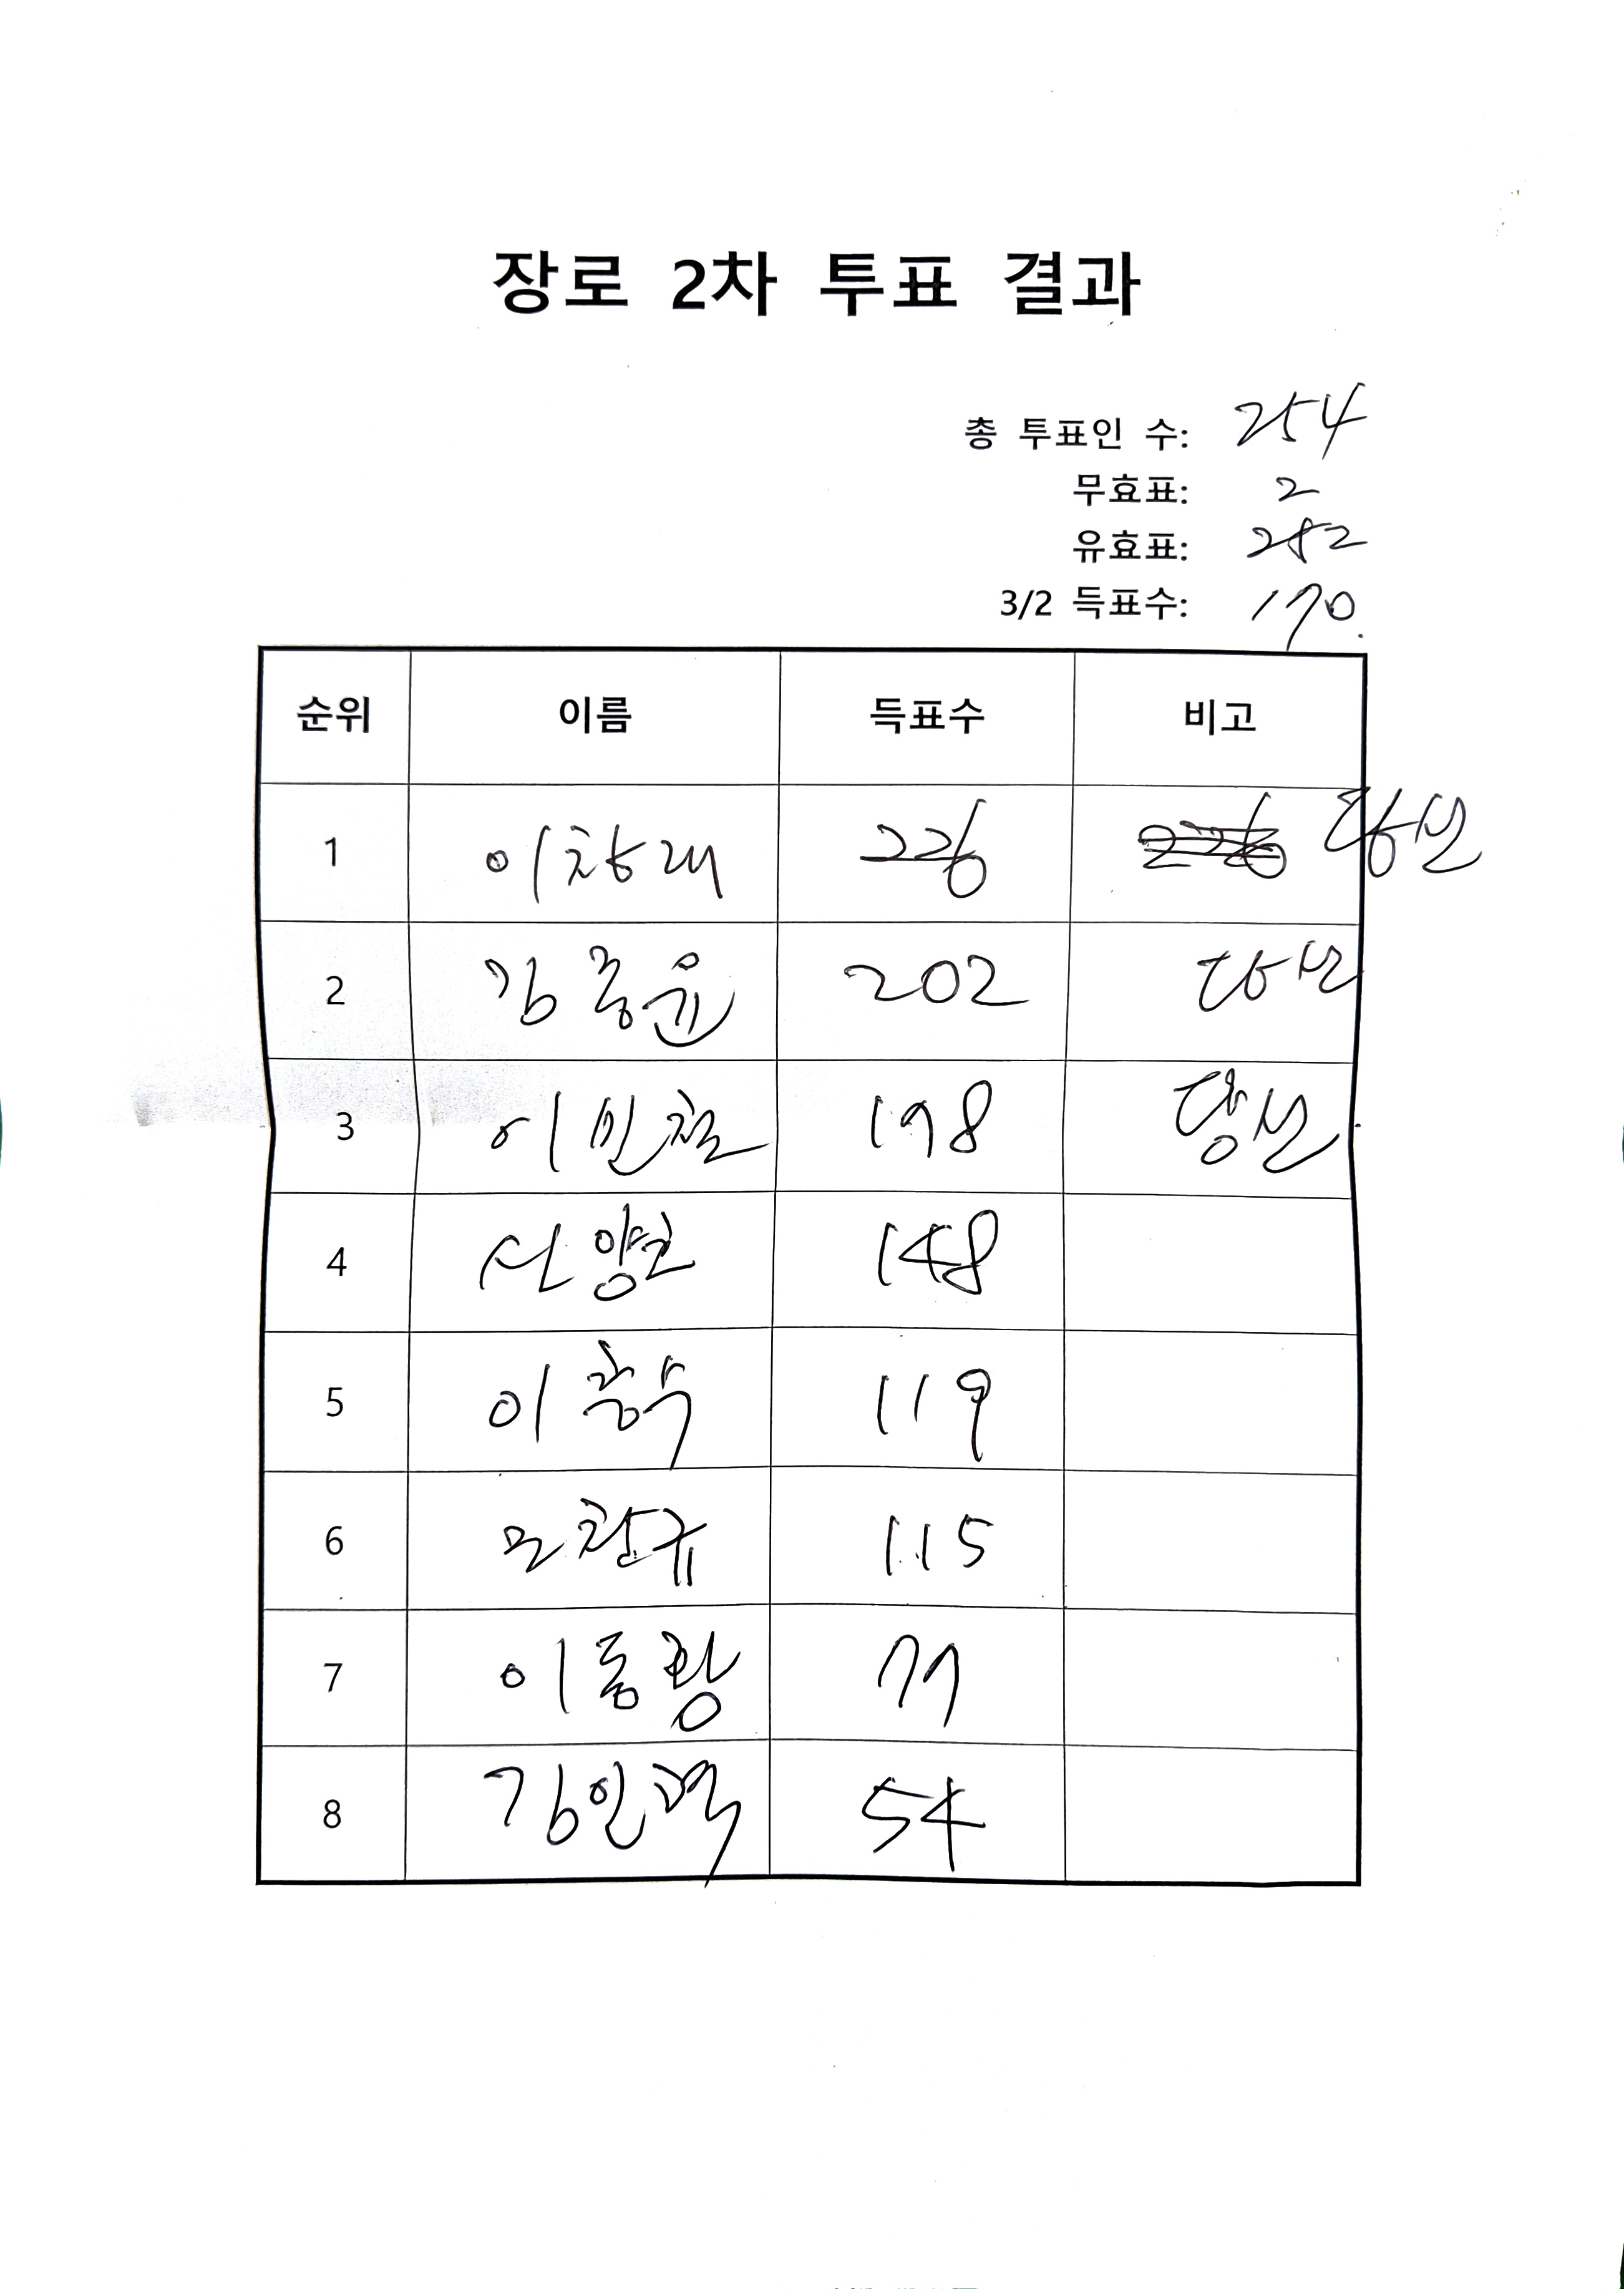 장로 2차 투표 결과
총 투표인 수: 254
무효표: 2
유효표: 252
3/2 득표수: 170.
순위 이름 득표수 비고
1 이창래 226 226 당선
2 김종윤 202 당선
3 이민철 198 당선
4 148
5 이 119
6 115
7 이 77
8 김인 54